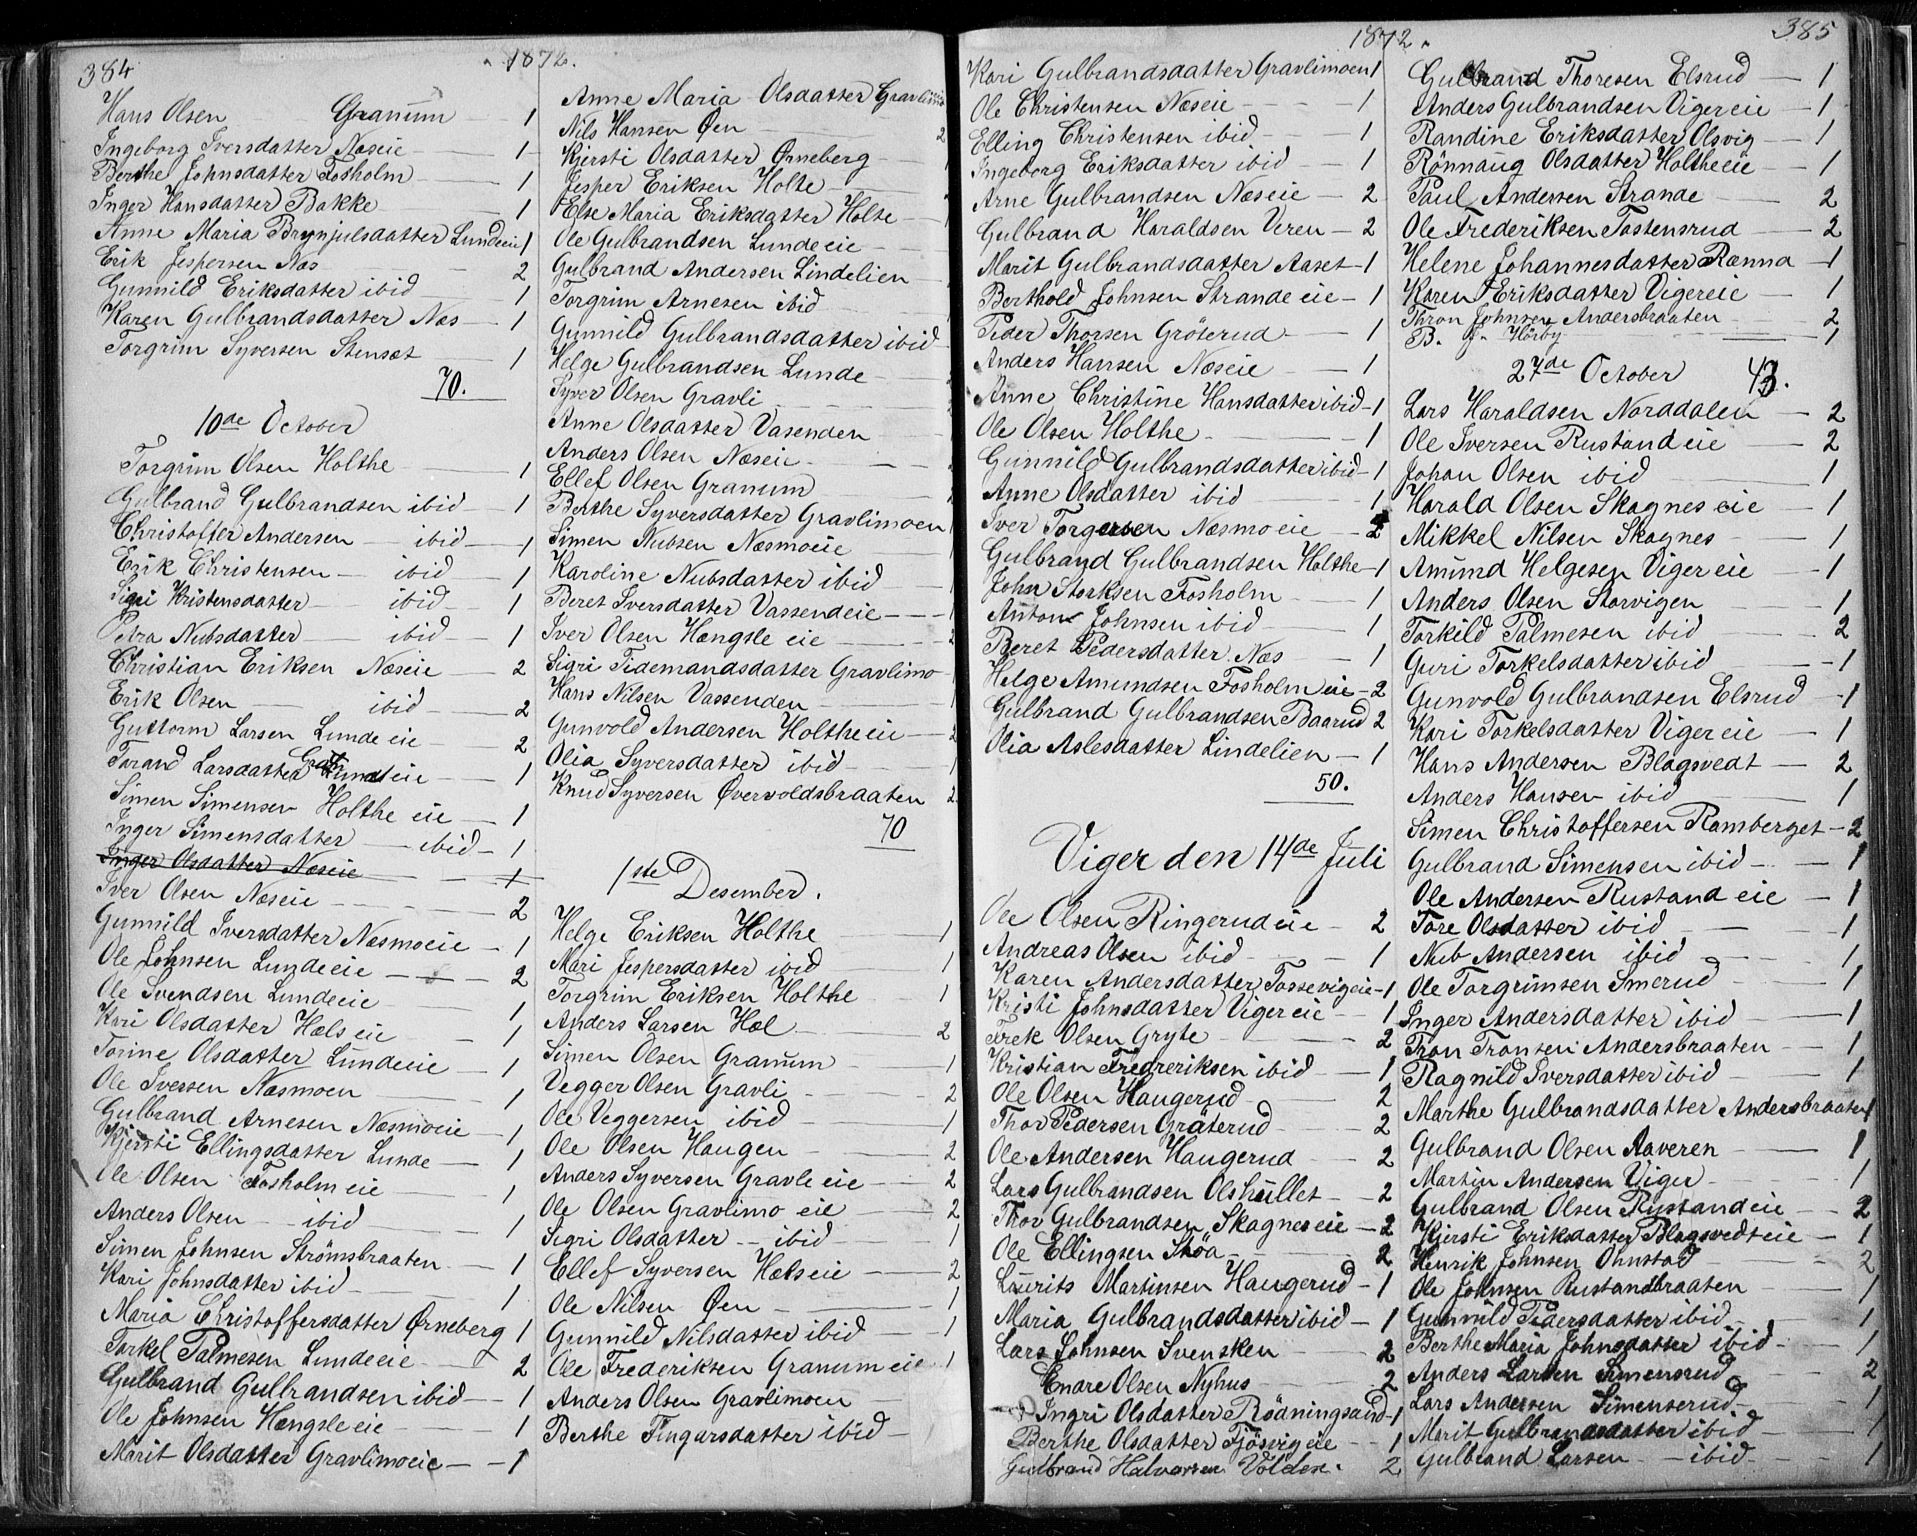 384
1872.
Hans Olsen Granum 1
Ingeborg Iversdatter Næseie 1
Berthe Johnsdatter Fosholm 1
Inger Hansdatter Bakke 1
Anne Maria Brynjulsdatter Lundeeie 1
Erik Jespersen Næs 2
Gunnild Eriksdatter ibid 1
Karen Gulbrandsdatter Næs 1
Torgrim Syversen Stensæt 1
70.
10de October
Torgrim Olsen Holthe 1
Gulbrand Gulbrandsen ibid 1
Christoffer Andersen ibid 1
Erik Christensen ibid 1
Sigri Kristensdatter ibid 1
Petra Nubsdatter ibid 1
Christian Eriksen Næseie 2
Erik Olsen ibid 2
Guttorm Larsen Lundeeie 2
Torand Larsdatter eie 1
Simen Simensen Holthe eie 1
Inger Simensdatter ibid 1
Inger Olsdatter Næseie 1
Iver Olsen Næseie 2
Gunnild Iversdatter Næsmoeie 1
Ole Johnsen Lundeeie 2
Ole Svendsen Lundeeie 1
Kari Olsdatter Hælseie 1
Torine Olsdatter Lundeeie 1
Ole Iversen Næsmoen 1
Gulbrand Arnesen Næsmoeie 1
Kjersti Ellingsdatter Lunde 1
Ole Olsen Fosholm eie 1
Anders Olsen ibid 1
Simen Johnsen Strömsbraaten 1
Kari Johnsdatter ibid 1
Maria Christoffersdatter Ørneberg 1
Torkel Palmesen Lundeeie 2
Gulbrand Gulbrandsen ibid 1
Ole Johnsen Hængsle eie 1
Marit Olsdatter Gravlimoeie 1
Anne Maria Olsdatter Gravlimo
Nils Hansen Øen 2
Kjersti Olsdatter Ørneberg 1
Jesper Eriksen Holte
Else Maria Eriksdatter Holte
Ole Gulbrandsen Lundeeie
Gulbrand Andersen Lindelien
Torgrim Arnesen ibid
Gunnild Gulbrandsdatter ibid
Helge Gulbrandsen Lunde
Syver Olsen Gravli
Anne Olsdatter Vasenden
Anders Olsen Næseie
Ellef Olsen Granum
Berthe Syversdatter Gravlimoen
Simen Nubsen Næsmoeie
Karoline Nubsdatter ibid
Beret Iversdatter Vassendeie 1
Iver Olsen Hængsle eie 2
Sigri Tidemandsdatter Gravlimo
Hans Nilsen Vassenden 1
Gunvold Andersen Holtheeie 2
Olia Syversdatter ibid 1
Knud Syversen Øvervoldsbraaten 2
70
1ste Desember.
Helge Eriksen Holthe 1
Mari Jespersdatter ibid 1
Torgrim Eriksen Holthe 1
Anders Larsen Hæl 2
Simen Olsen Granum 1
Vegger Olsen Gravli 2
Ole Veggersen ibid 1
Ole Olsen Haugen 2
Anders Syversen Gravle eie 2
Ole Olsen Gravlimo eie 2
Sigri Olsdatter ibid 1
Ellef Syversen Hælseie 2
Ole Nilsen Øen 1
Gunnild Nilsdatter ibid 1
Ole Frederiksen Granum eie 1
Anders Olsen Gravlimoen 1
Berthe Fingarsdatter ibid 1
385
1872.
Kari Gulbrandsdatter Gravlimoen 1
Ole Christensen Næseie 1
Elling Christensen ibid 1
Ingeborg Eriksdatter ibid 1
Arne Gulbrandsen Næseie 2
Gulbrand Haraldsen Veren 2
Marit Gulbrandsdatter Aaset 1
Berthold Johnsen Strande eie 1
Peder Thorsen Gröterud 1
Anders Hansen Næseie 1
Anne Christine Hansdatter ibid 1
Ole Olsen Holthe 1
Gunnild Gulbrandsdatter ibid 1
Anne Olsdatter ibid 1
Iver Torgersen Næsmoeie 2
Gulbrand Gulbrandsen Holthe 1
John Storksen Fosholm 1
Anton Johnsen ibid 1
Beret Pedersdatter Næs 1
Helge Amundsen Fosholm eie 2
Gulbrand Gulbrandsen Baarud 2
Olia Aslesdatter Lindelien 1
50.
Viger den 14de Juli
Ole Olsen Ringerudeie 2
Andreas Olsen ibid 1
Karen Andersdatter Fossevigeie 1
Kristi Johnsdatter Vigereie 1
Frek Olsen Gryte 2
Kristian Fredreriksen ibid 1
Ole Olsen Haugerud 2
Thor Pedersen Gräterud 2
Ole Andersen Haugerud 2
Lars Gulbrandsen Olshullet 2
Thor Gulbrandsen Skagneseie 2
Ole Ellingsen Stöa 2
Laurits Martinsen Haugerud 1
Maria Gulbrandsdatter ibid 1
Lars Johnsen Svensken 2
Endre Olsen Nyhus 2
Ingri Olsdatter Rödningsand 1
Berthe Olsdatter Fjösvigeie 1
Gulbrand Halvorsen Volden 2
Gulbrand Thoresen Elsrud 1
Anders Gulbrandsen Vigereie 1
Randine Eriksdatter Olsvig 1
Rönnaug Olsdatter Holtheeie 1
Paul Andersen Strande 2
Ole Frederiksen Tostensrud 2
Helene Johannesdatter Rænna 1
Karen Eriksdatter Vigereie 1
Thron Johnsen Andersbraaten 2
B. J. Hörby 1
27de October 43.
Lars Haraldsen Norddalen 2
Ole Iversen Rustandeie 2
Johan Olsen ibid 1
Harald Olsen Skagnes eie 1
Mikkel Nilsen Skagnes 1
Amund Helgesen Vigereie 1
Anders Olsen Storvigen 1
Torkild Palmesen ibid 2
Guri Torkelsdatter ibid 1
Gunvold Gulbrandsen Elsrud 1
Kari Torkelsdatter Vigereie 1
Hans Andersen Blagsvedt 2
Anders Hansen ibid 1
Simen Christoffersen Ramberget 2
Gulbrand Simensen ibid 1
Ole Andersen Rustand eie 1
Tore Olsdatter ibid 1
Nub Andersen ibid 1
Ole Torgrimsen Smerud 1
Inger Andersdatter ibid 1
Tron Tronsen Andersbraaten 1
Ragnild Iversdatter ibid 1
Marthe Gulbrandsdatter Andersbraaten 1
Gulbrand Olsen Aaveren 1
Martin Andersen Viger 1
Gulbrand Olsen Rustandeie 2
Kjersti Eriksdatter Blagsvedteie 1
Henrik Johnsen Ohnstad 2
Ole Johnsen Rustandbraaten 1
Gunnild Pedersdatter ibid 1
Berthe Maria Johnsdatter ibid 1
Anders Larsen Simensrud 2
Lars Andersen Simenserud 1
Marit Gulbrandsdatter ibid 1
Gulbrand Larsen ibid 1